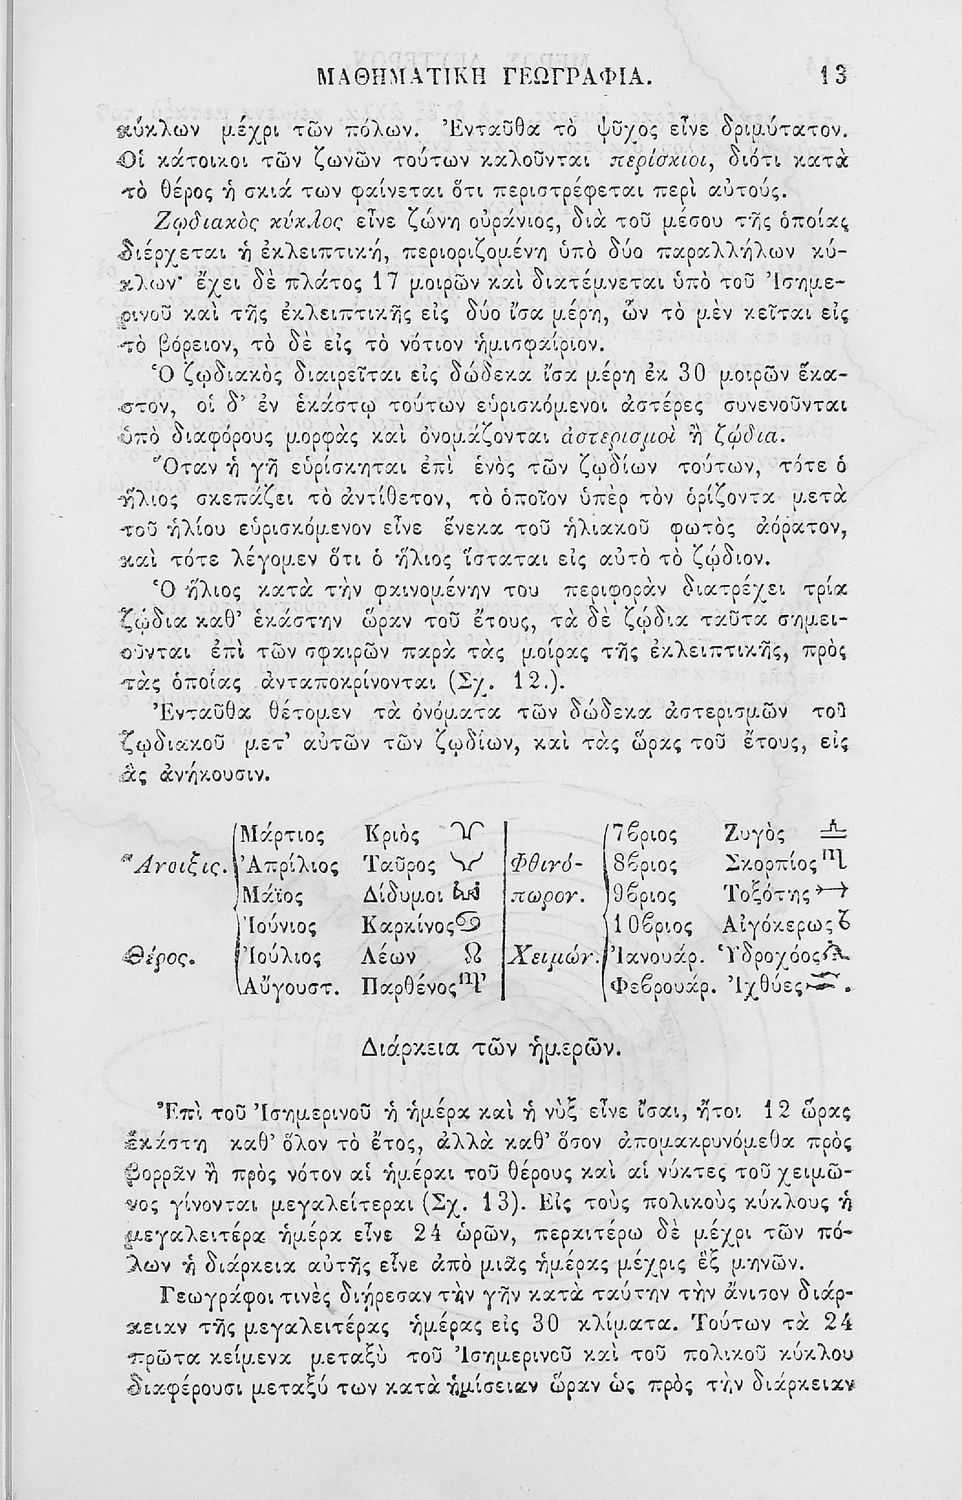 ΜΑΘΗΜΑΤΙΚΗ ΓΕΩΓΡΑΦΙΑ. 13
κύκλων μέχρι τῶν πόλων. Ἐνταῦθα τὸ ψῦχος εἶνε δριμύτατον.
Οἱ κάτοικοι τῶν ζωνῶν τούτων καλοῦνται περίσκιοι, διότι κατὰ
τὸ θέρος ἡ σκιά των φαίνεται ὅτι περιστρέφεται περὶ αὐτούς.
Ζῳδιακὸς κύκλος εἶνε ζώνη οὐράνιος, διὰ τοῦ μέσου τῆς ὁποίας
διέρχεται ἡ ἐκλειπτική, περιοριζομένη ὑπὸ δύο παραλλήλων κύ-
κλων· ἔχει δὲ πλάτος 17 μοιρῶν καὶ διατέμνεται ὑπὸ τοῦ Ἰσημε-
ρινοῦ καὶ τῆς ἐκλειπτικῆς εἰς δύο ἴσα μέρη, ὧν τὸ μὲν κεῖται εἰς
τὸ βόρειον, τὸ δὲ εἰς τὸ νότιον ἡμισφαίριον.
Ὁ ζῳδιακὸς διαιρεῖται εἰς δώδεκα ἴσα μέρη ἐκ 30 μοιρῶν ἕκα-
στον, οἱ δ' ἐν ἑκάστῳ τούτων εὑρισκόμενοι ἀστέρες συνενοῦνται
ὑπὸ διαφόρους μορφὰς καὶ ὀνομάζονται ἀστερισμοὶ ἢ ζῴδια.
Ὅταν ἡ γῆ εὑρίσκηται ἐπὶ ἑνὸς τῶν ζῳδίων τούτων, τότε ὁ
ἥλιος σκεπάζει τὸ ἀντίθετον, τὸ ὁποῖον ὑπὲρ τὸν ὁρίζοντα μετὰ
τοῦ ἡλίου εὑρισκόμενον εἶνε ἕνεκα τοῦ ἡλιακοῦ φωτὸς ἀόρατον,
καὶ τότε λέγομεν ὅτι ὁ ἥλιος ἵσταται εἰς αὐτὸ τὸ ζῴδιον.
Ὁ ἥλιος κατὰ τὴν φαινομένην του περιφορὰν διατρέχει τρία
ζῴδια καθ' ἑκάστην ὥραν τοῦ ἔτους, τὰ δὲ ζῴδια ταῦτα σημει-
οῦνται ἐπὶ τῶν σφαιρῶν παρὰ τὰς μοίρας τῆς ἐκλειπτικῆς, πρὸς
τὰς ὁποίας ἀνταποκρίνονται (Σχ. 12.).
Ἐνταῦθα θέτομεν τὰ ὀνόματα τῶν δώδεκα ἀστερισμῶν τοῦ
ζῳδιακοῦ μετ' αὐτῶν τῶν ζῳδίων, καὶ τὰς ὥρας τοῦ ἔτους, εἰς
ἃς ἀνήκουσιν.
Μάρτιος Κριὸς ♈ 7βριος Ζυγὸς ♎
Ἄνοιξις. Ἀπρίλιος Ταῦρος ♉ Φθινό- 8βριος Σκορπίος ♏
Μάϊος Δίδυμοι ♊ πωρον. 9βριος Τοξότης ♐
Ἰούνιος Καρκίνος ♋ 10βριος Αἰγόκερως ♑
Θέρος. Ἰούλιος Λέων ♌ Χειμών. Ἰανουάρ. Ὑδροχόος ♒
Αὔγουστ. Παρθένος ♍ Φεβρουάρ. Ἰχθύες ♓.
Διάρκεια τῶν ἡμερῶν.
Ἐπὶ τοῦ Ἰσημερινοῦ ἡ ἡμέρα καὶ ἡ νὺξ εἶνε ἴσαι, ἤτοι 12 ὥρας
ἑκάστη καθ' ὅλον τὸ ἔτος, ἀλλὰ καθ' ὅσον ἀπομακρυνόμεθα πρὸς
βορρᾶν ἢ πρὸς νότον αἱ ἡμέραι τοῦ θέρους καὶ αἱ νύκτες τοῦ χειμῶ-
νος γίνονται μεγαλείτεραι (Σχ. 13). Εἰς τοὺς πολικοὺς κύκλους ἡ
μεγαλειτέρα ἡμέρα εἶνε 24 ὡρῶν, περαιτέρω δὲ μέχρι τῶν πό-
λων ἡ διάρκεια αὐτῆς εἶνε ἀπὸ μιᾶς ἡμέρας μέχρις ἓξ μηνῶν.
Γεωγράφοι τινὲς διῄρεσαν τὴν γῆν κατὰ ταύτην τὴν ἄνισον διάρ-
κειαν τῆς μεγαλειτέρας ἡμέρας εἰς 30 κλίματα. Τούτων τὰ 24
πρῶτα κείμενα μεταξὺ τοῦ Ἰσημερινοῦ καὶ τοῦ πολικοῦ κύκλου
διαφέρουσι μεταξύ των κατὰ ἡμίσειαν ὥραν ὡς πρὸς τὴν διάρκειαν